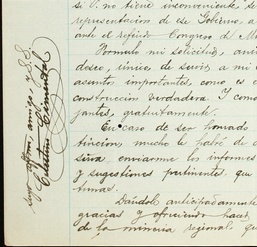 si V. no tiene inconveniente se
representación de ese Gobierno, a
ante el referido Congreso de Me
Formulo mi solicitud, anim
deseo, único, de servir a mi
asuntos importantes, como es e
construcción verdadera. Y como
jantes, gratuitamente.
En caso de ser honrado
tinción, mucho le habré de a
sirva enviarme los informes
y sugestiones pertinentes, que
tunas.
Dándole anticipadamente
gracias y ofreciendo hacer
de la minería regional qu
suyo afmo., amigo, y S.S.